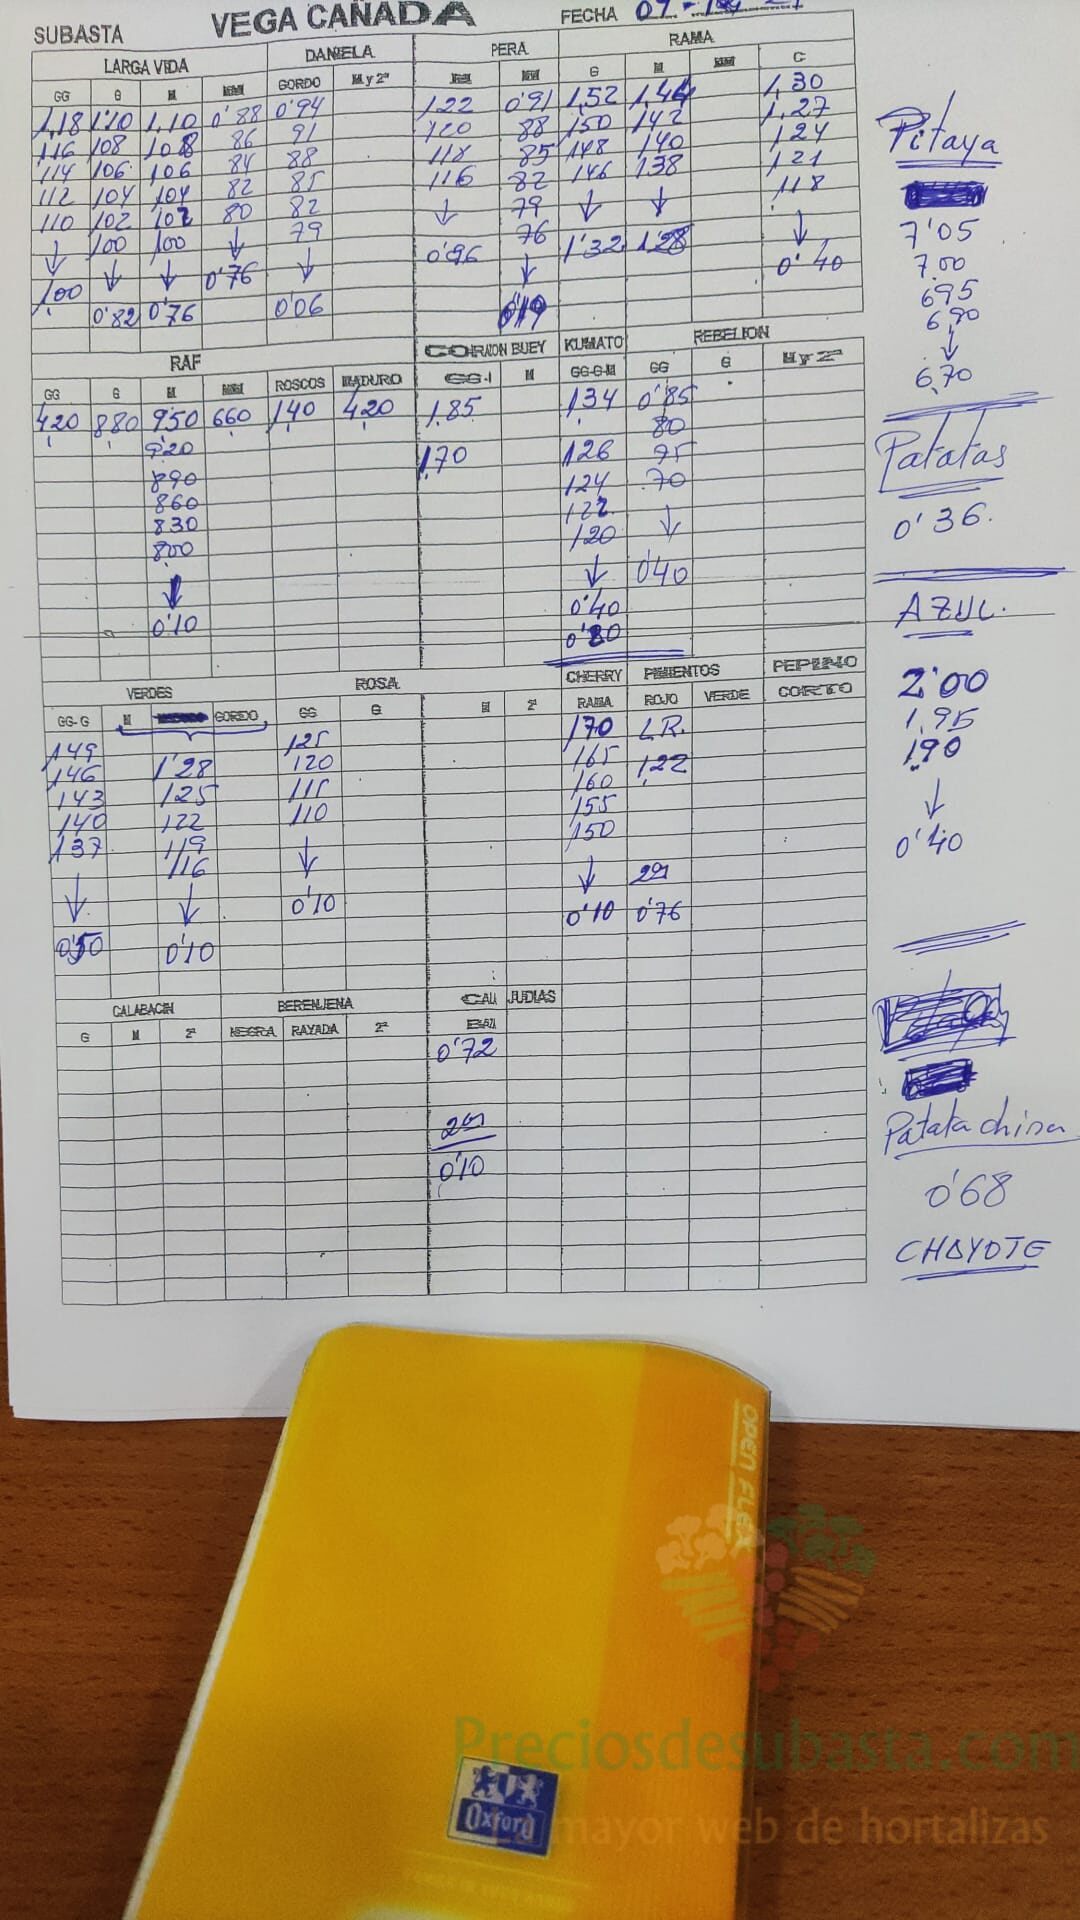 SUBASTA VEGA CAÑADA FECHA
LARGA VIDA DANIELA PERA RAMA
GG G M MM GORDO M y 2ª M MM G M MM C
1,18 1'10 1,10 0'88 0'94 1,22 0'91 1,52 1,44 1,30
116 108 108 86 91 120 88 150 142 1,27
114 106 106 84 88 118 85 148 140 124
112 104 104 82 85 116 82 146 138 121
110 102 102 80 82 ↓ 79 ↓ ↓ 118
↓ 100 100 ↓ 79 0'96 76 1'32 1'28 ↓
1,00 ↓ ↓ 0'76 ↓ ↓ 0'40
0'82 0'76 0'06 0'19
RAF CORAZON BUEY KUMATO REBELION
GG G M MM ROSCOS MADURO GG-1 M GG-G-M GG G M y 2ª
420 880 950 660 140 420 1,85 1,34 0'85
920 80
890 1,70 126
860 124 70
830 122
800 120 ↓
↓ ↓ 0'40
0'10 0'40
VERDES ROSA CHERRY PIMIENTOS PEPINO
GG-G M GORDO GG G M 2ª RAMA ROJO VERDE CORTO
149 125 170 L.R.
146 1'28 120 165 1,22
143 125 115 160
140 122 110 155
137 119 150
116 ↓ ↓
↓ ↓ 0'10 0'10 0'76
0'50 0'10
CALABACIN BERENJENA CALI JUDIAS
G M 2ª NEGRA RAYADA 2ª
0'72
0'10
Pitaya
7'05
7.00
695
6,90
↓
6,70
Patatas
0'36.
AZUL.
2'00
1,95
1,90
↓
0'40
Patata china
0'68
CHAYOTE
OPEN FLEX
Oxford
Preciosdesubasta.com
mayor web de hortalizas